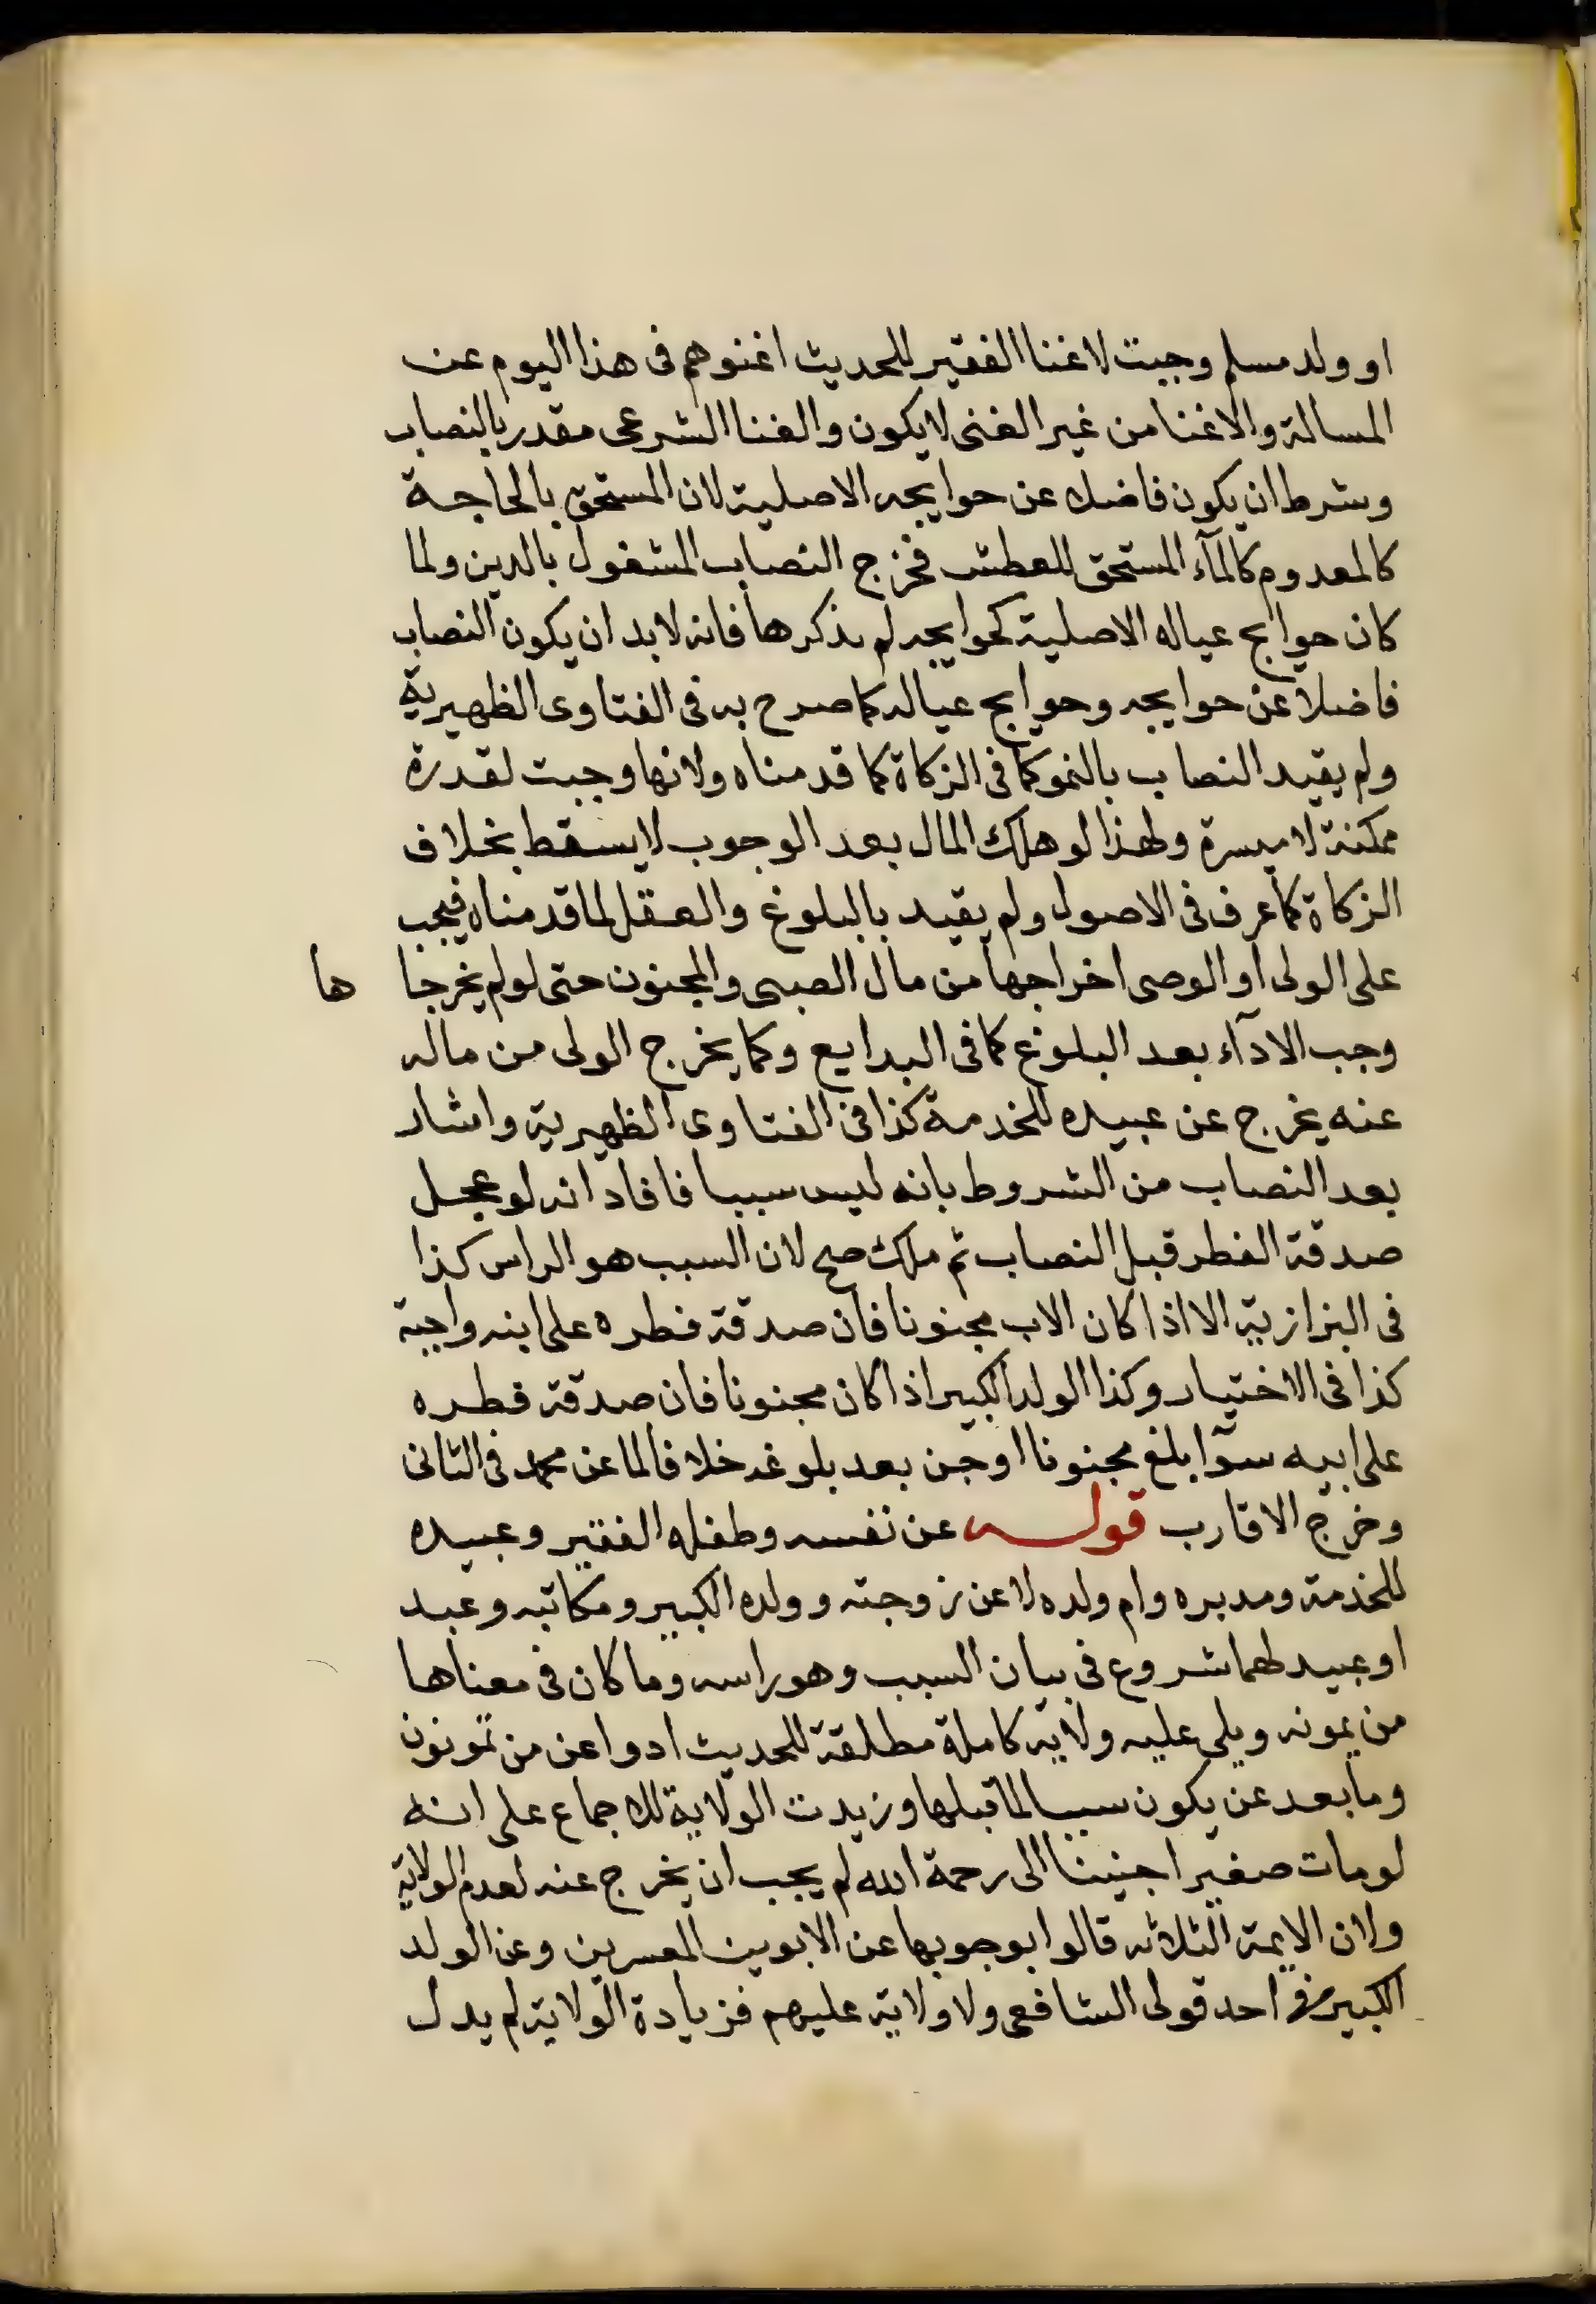 او ولد مسلم وجبت لاغنا الفقير للحديث اغنوهم فى هذا اليوم عن
المسالة والاغنا من غير الغنى لا يكون والغنا الشرعى مقدر بالنصاب
وشرط ان يكون فاضلا عن حوايجه الاصلية لان المستحق بالحاجة
كالمعدوم كالمآء المستحق للعطش فخرج النصاب المشغول بالدين ولما
كان حوايج عياله الاصلية كحوايجه لم يذكرها فانه لا بد ان يكون النصاب
فاضلا عن حوايجه وحوايج عياله كما صرح به فى الفتاوى الظهيرية
ولم يقيد النصاب بالنمو كما فى الزكاة كما قدمناه ولانها وجبت لقدرة
ممكنة لا ميسرة ولهذا لو هلك المال بعد الوجوب لا يسقط بخلاف
الزكاة كما عرف فى الاصول ولم يقيد بالبلوغ والعقل لما قدمناه فيجب
على الولى او الوصى اخراجها من مال الصبى والمجنون حتى لو لم يخرجا ها
وجب الادآء بعد البلوغ كما فى البدايع وكما يخرج الولى من ماله
عنه يخرج عن عبيده للخدمة كذا فى الفتاوى الظهيرية واشار
بعد النصاب من الشروط بانه ليس سببا فافاد انه لو عجل
صدقة الفطر قبل النصاب ثم ملك صح لان السبب هو الراس كذا
فى البزازية الا اذا كان الاب مجنونا فان صدقة فطره على ابنه واجبة
كذا فى الاختيار وكذا الولد الكبير اذا كان مجنونا فان صدقة فطره
على ابيه سوآ بلغ مجنونا او جن بعد بلوغه خلافا لما عن محمد فى الثانى
وخرج الاقارب قوله عن نفسه وطفله الفقير وعبيده
للخدمة ومدبره وام ولده لا عن زوجته وولده الكبير ومكاتبه وعبد
او عبيد لهما شروع فى بيان السبب وهو راسه وما كان فى معناها
من يمونه ويلى عليه ولاية كاملة مطلقة للحديث ادوا عن من تمونون
وما بعد عن يكون سببا لما قبلها وزيدت الولاية للاجماع على انه
لو مات صغير اجنبنا الى رحمة الله لم يجب ان يخرج عنه لعدم الولاية
ولان الايمة الثلاثه قالوا بوجوبها عن الابوين المعسرين وعن الولد
الكبير فى احد قولى الشافعى ولا ولاية عليهم فزيادة الولاية لم يدل